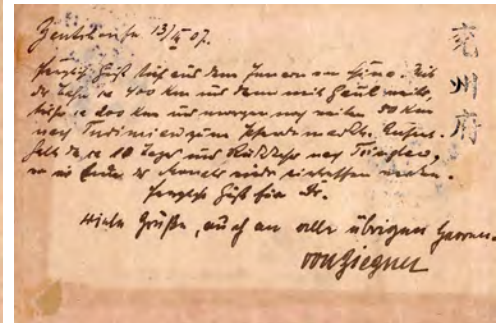 13/ 07.
aus dem Innern von China. Mit
der Bahn ca 400 km und dann mit Gaul weiter,
bisher ca 200 km und morgen noch weiter 50 km
nach zum Pferdemarkt. Aufent-
halt da ca 10 Tage und Rückkehr nach Tsingtau,
wo wir Ende des Monats wieder eintreffen werden.
Herzliche
Viele Grüße, auch an alle übrigen Herren.
von Ziegner
兗州府